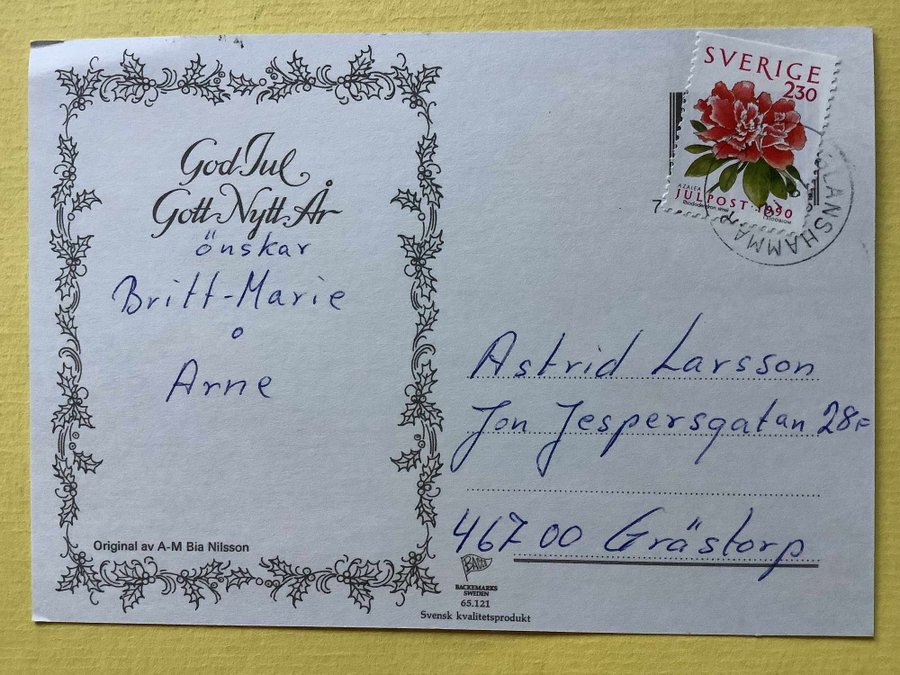 God Jul
Gott Nytt År
önskar
Britt-Marie
o
Arne
Original av A-M Bia Nilsson
SVERIGE
2.30
AZALEA
JULPOST 1990
Astrid Larsson
Jon Jespersgatan 28F
467 00 Grästorp
BACKEMARKS
SWEDEN
65.121
Svensk kvalitetsprodukt